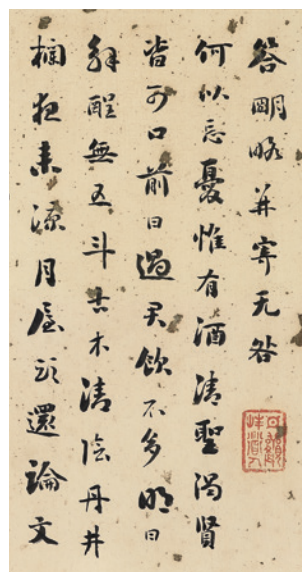 答明略并寄无咎
何以忘憂惟有酒清聖濁賢
皆可口前日過君飲不多明日
解酲無五斗古木清陰丹井
欄夜來涼月屋頭還論文